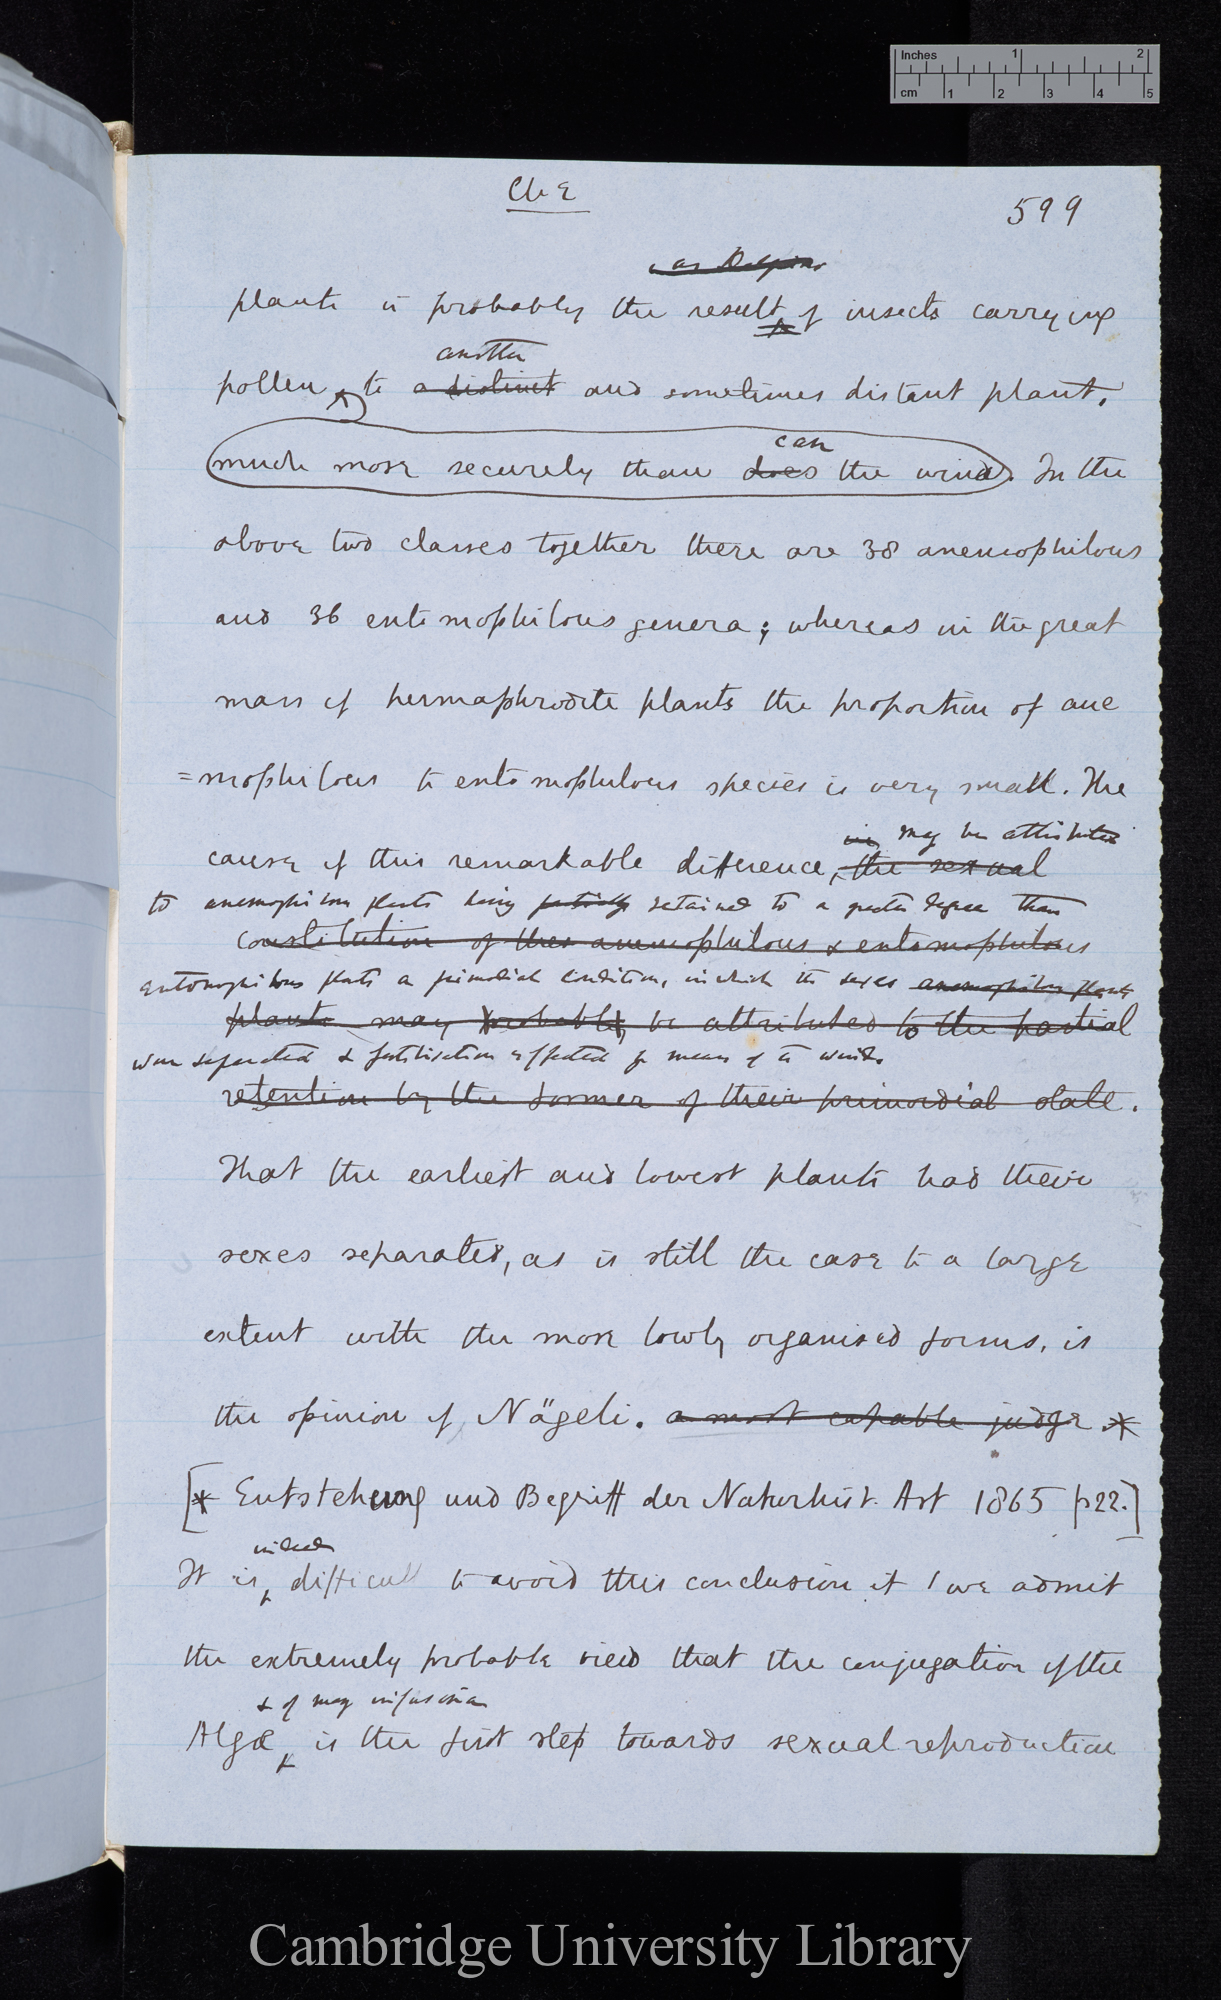 Inches 1 2
cm 1 2 3 4 5
Ch 2
599
as Delpino
plants is probably the result of insects carrying
another
pollen to a distinct and sometimes distant plant,
can
much more securely than does the wind. In the
above two classes together there are 38 anemophilous
and 36 entomophilous genera; whereas in the great
mass of hermaphrodite plants the proportion of ane
=mophilous to entomophilous species is very small. The
may be attributed
cause of this remarkable difference, the sexual
to anemophilous plants having partially retained to a greater degree than
constitution of these anemophilous & entomophilous
entomophilous plants a primordial condition, in which the sexes anemophilous plants
plants may probably be attributed to the partial
were separated & fertilisation effected by means of the wind.
retention by the former of their primordial state.
That the earliest and lowest plants had their
sexes separated, as is still the case to a large
extent with the more lowly organised forms, is
the opinion of Nägeli. a most capable judge *
[* Entstehung und Begriff der Naturhist. Art 1865 p 22.]
indeed
It is difficult to avoid this conclusion if we admit
the extremely probable view that the conjugation of the
& of many infusoria
Algæ is the first step towards sexual reproduction
Cambridge University Library